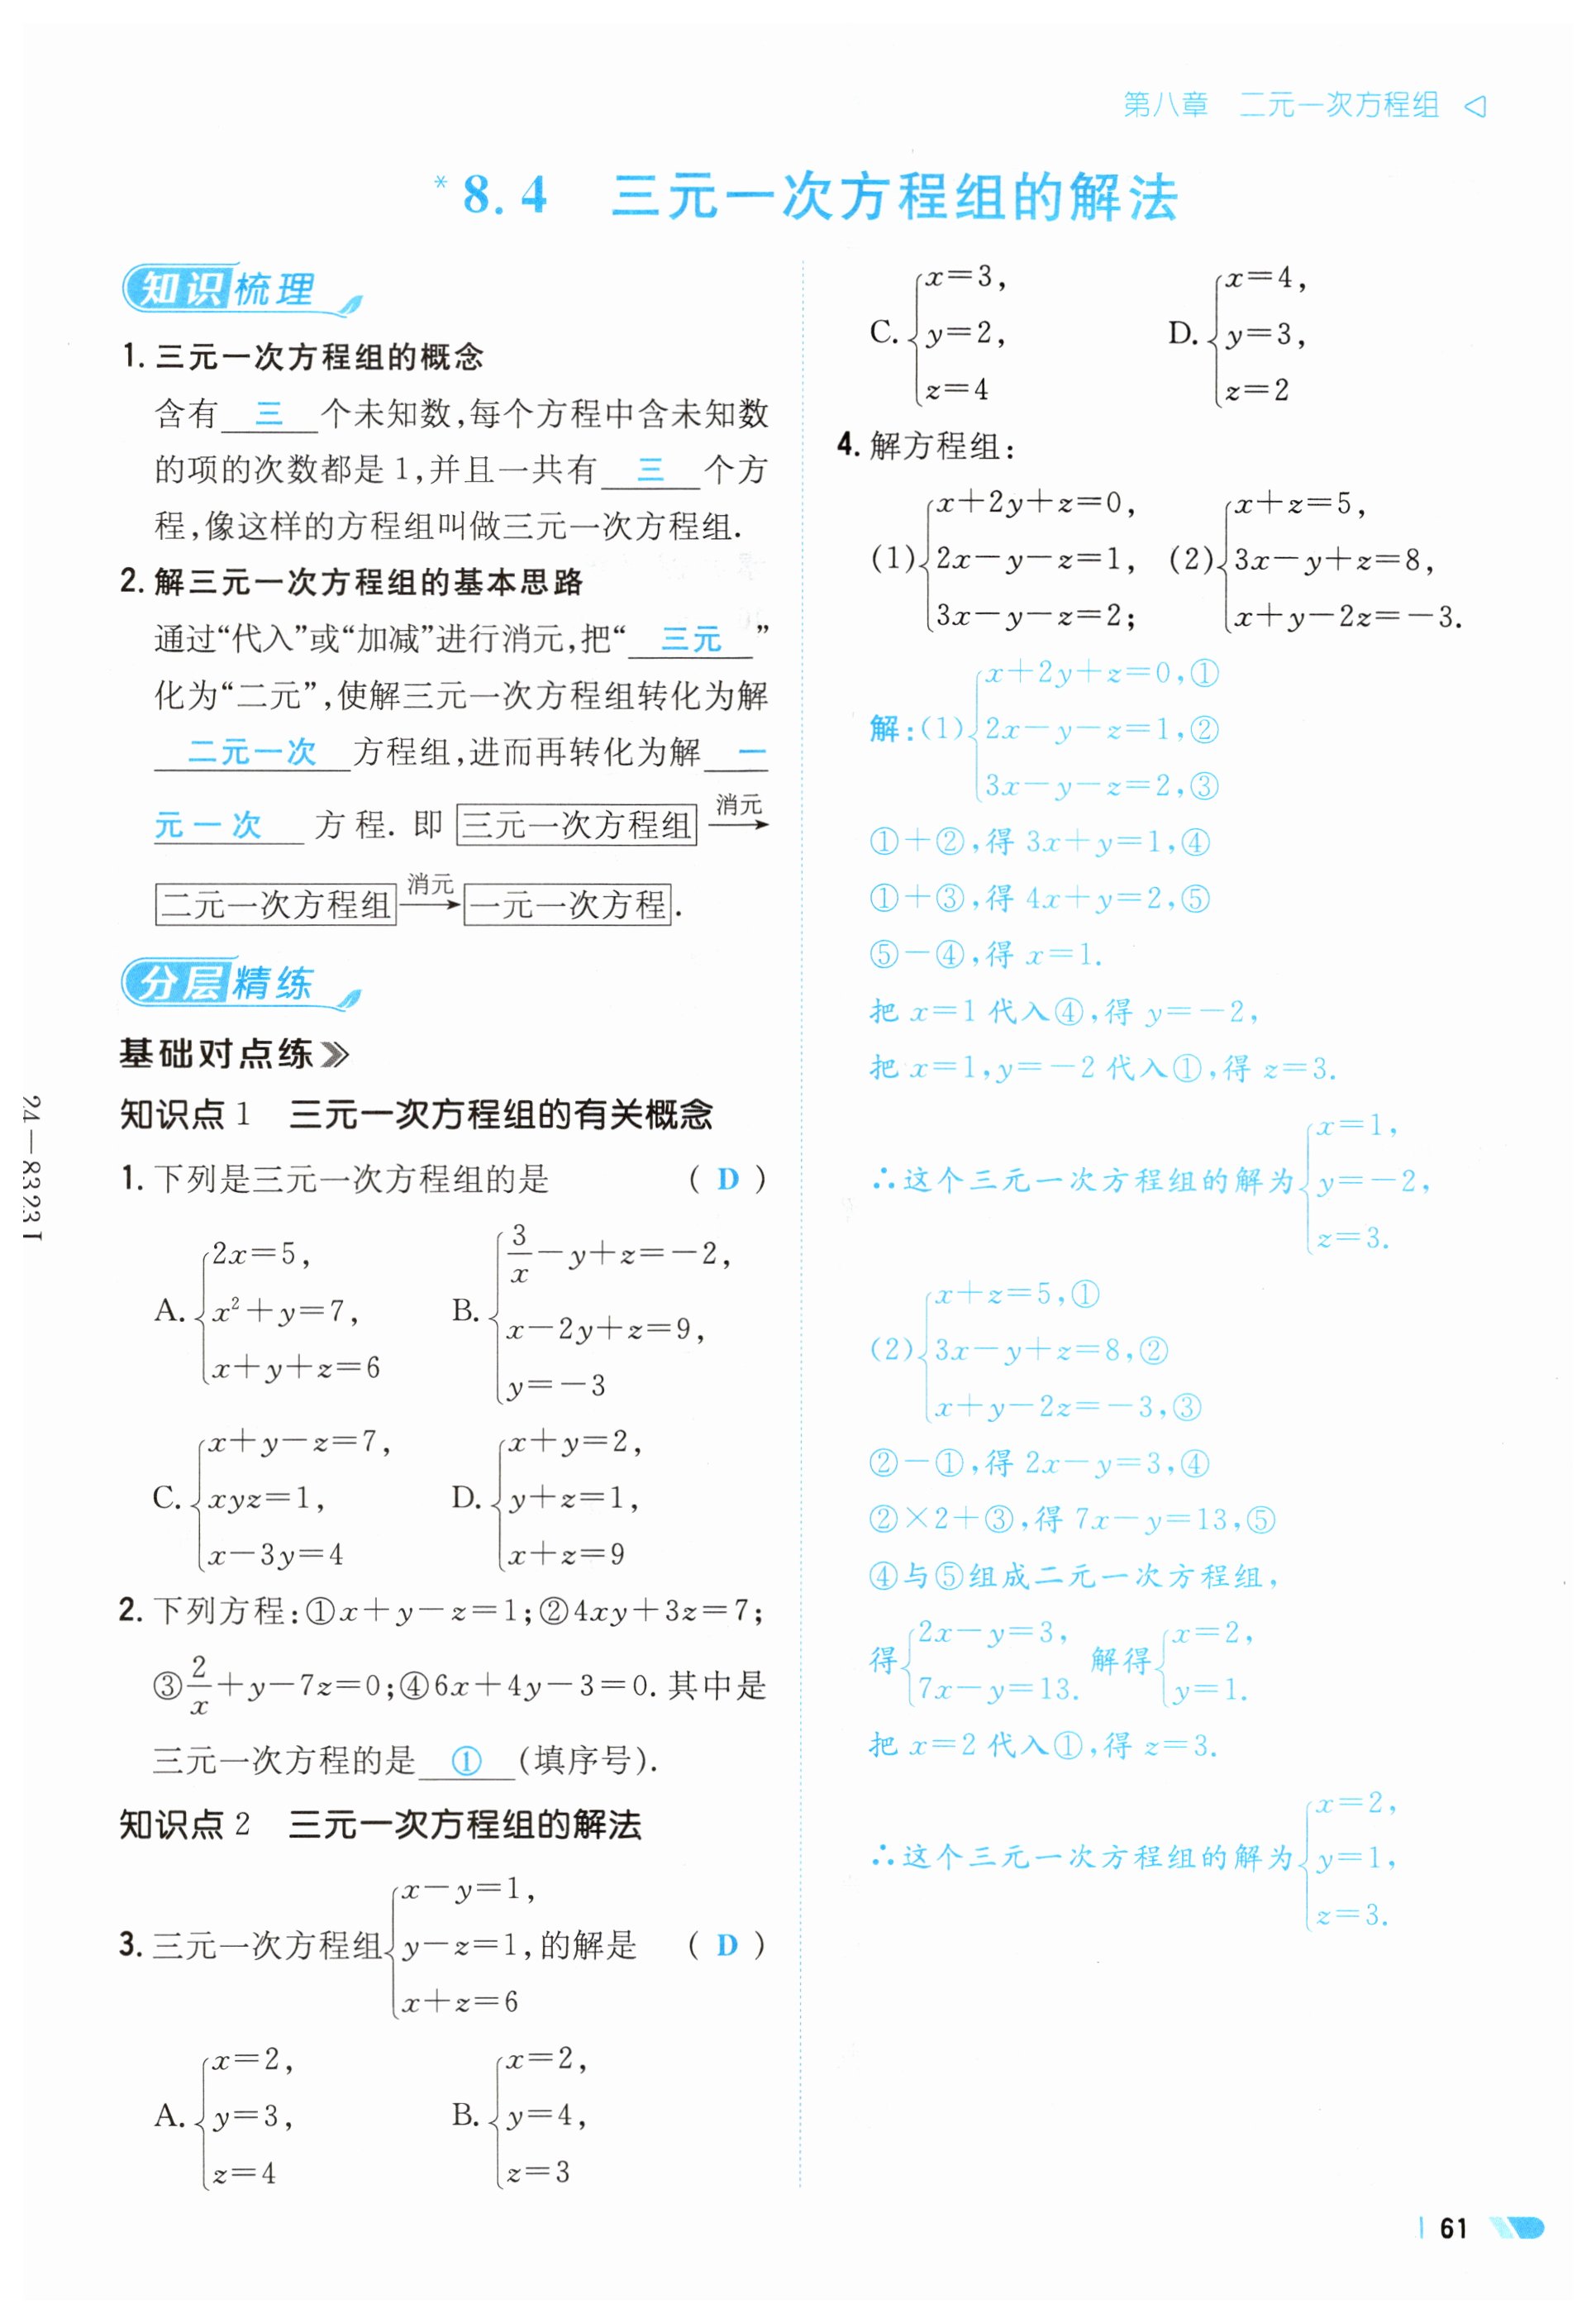 第八章 二元一次方程组
*8.4 三元一次方程组的解法
知识梳理
1. 三元一次方程组的概念
含有 三 个未知数,每个方程中含未知数
的项的次数都是1,并且一共有 三 个方
程,像这样的方程组叫做三元一次方程组.
2. 解三元一次方程组的基本思路
通过“代入”或“加减”进行消元,把“ 三元 ”
化为“二元”,使解三元一次方程组转化为解
二元一次 方程组,进而再转化为解 一
元一次 方程. 即 三元一次方程组 消元→
二元一次方程组 消元→ 一元一次方程.
分层精练
基础对点练
知识点1 三元一次方程组的有关概念
1. 下列是三元一次方程组的是 ( D )
A. {2x=5,
x²+y=7,
x+y+z=6
B. {3/x-y+z=-2,
x-2y+z=9,
y=-3
C. {x+y-z=7,
xyz=1,
x-3y=4
D. {x+y=2,
y+z=1,
x+z=9
2. 下列方程:①x+y-z=1;②4xy+3z=7;
③2/x+y-7z=0;④6x+4y-3=0. 其中是
三元一次方程的是 ① (填序号).
知识点2 三元一次方程组的解法
3. 三元一次方程组{x-y=1,
y-z=1, 的解是 ( D )
x+z=6
A. {x=2,
y=3,
z=4
B. {x=2,
y=4,
z=3
C. {x=3,
y=2,
z=4
D. {x=4,
y=3,
z=2
4. 解方程组:
(1){x+2y+z=0,
2x-y-z=1,
3x-y-z=2;
(2){x+z=5,
3x-y+z=8,
x+y-2z=-3.
解:(1){x+2y+z=0,①
2x-y-z=1,②
3x-y-z=2,③
①+②,得 3x+y=1,④
①+③,得 4x+y=2,⑤
⑤-④,得 x=1.
把 x=1 代入④,得 y=-2,
把 x=1,y=-2 代入①,得 z=3.
∴这个三元一次方程组的解为{x=1,
y=-2,
z=3.
(2){x+z=5,①
3x-y+z=8,②
x+y-2z=-3,③
②-①,得 2x-y=3,④
②×2+③,得 7x-y=13,⑤
④与⑤组成二元一次方程组,
得{2x-y=3,
7x-y=13.
解得{x=2,
y=1.
把 x=2 代入①,得 z=3.
∴这个三元一次方程组的解为{x=2,
y=1,
z=3.
61
24-8323J